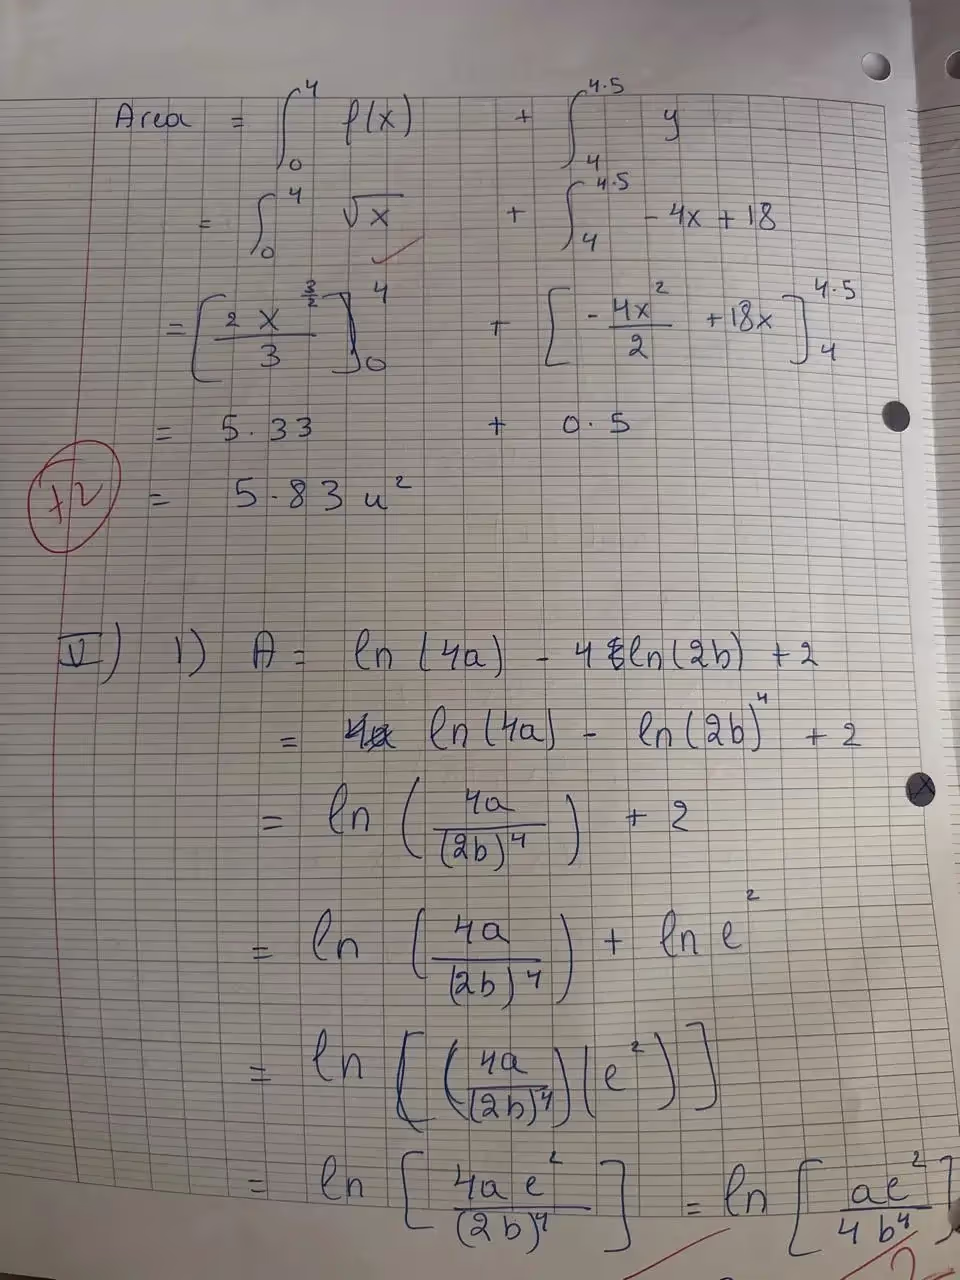 Area = ∫₀⁴ f(x) + ∫₄^4.5 y
= ∫₀⁴ √x + ∫₄^4.5 - 4x + 18
= [2x^(3/2)/3]₀⁴ + [-4x²/2 + 18x]₄^4.5
= 5.33 + 0.5
+2 = 5.83 u²
V) 1) A = ln(4a) - 4 ln(2b) + 2
= ln(4a) - ln(2b)⁴ + 2
= ln(4a/(2b)⁴) + 2
= ln(4a/(2b)⁴) + ln e²
= ln[(4a/(2b)⁴)(e²)]
= ln[4ae²/(2b)⁴] = ln[ae²/4b⁴]